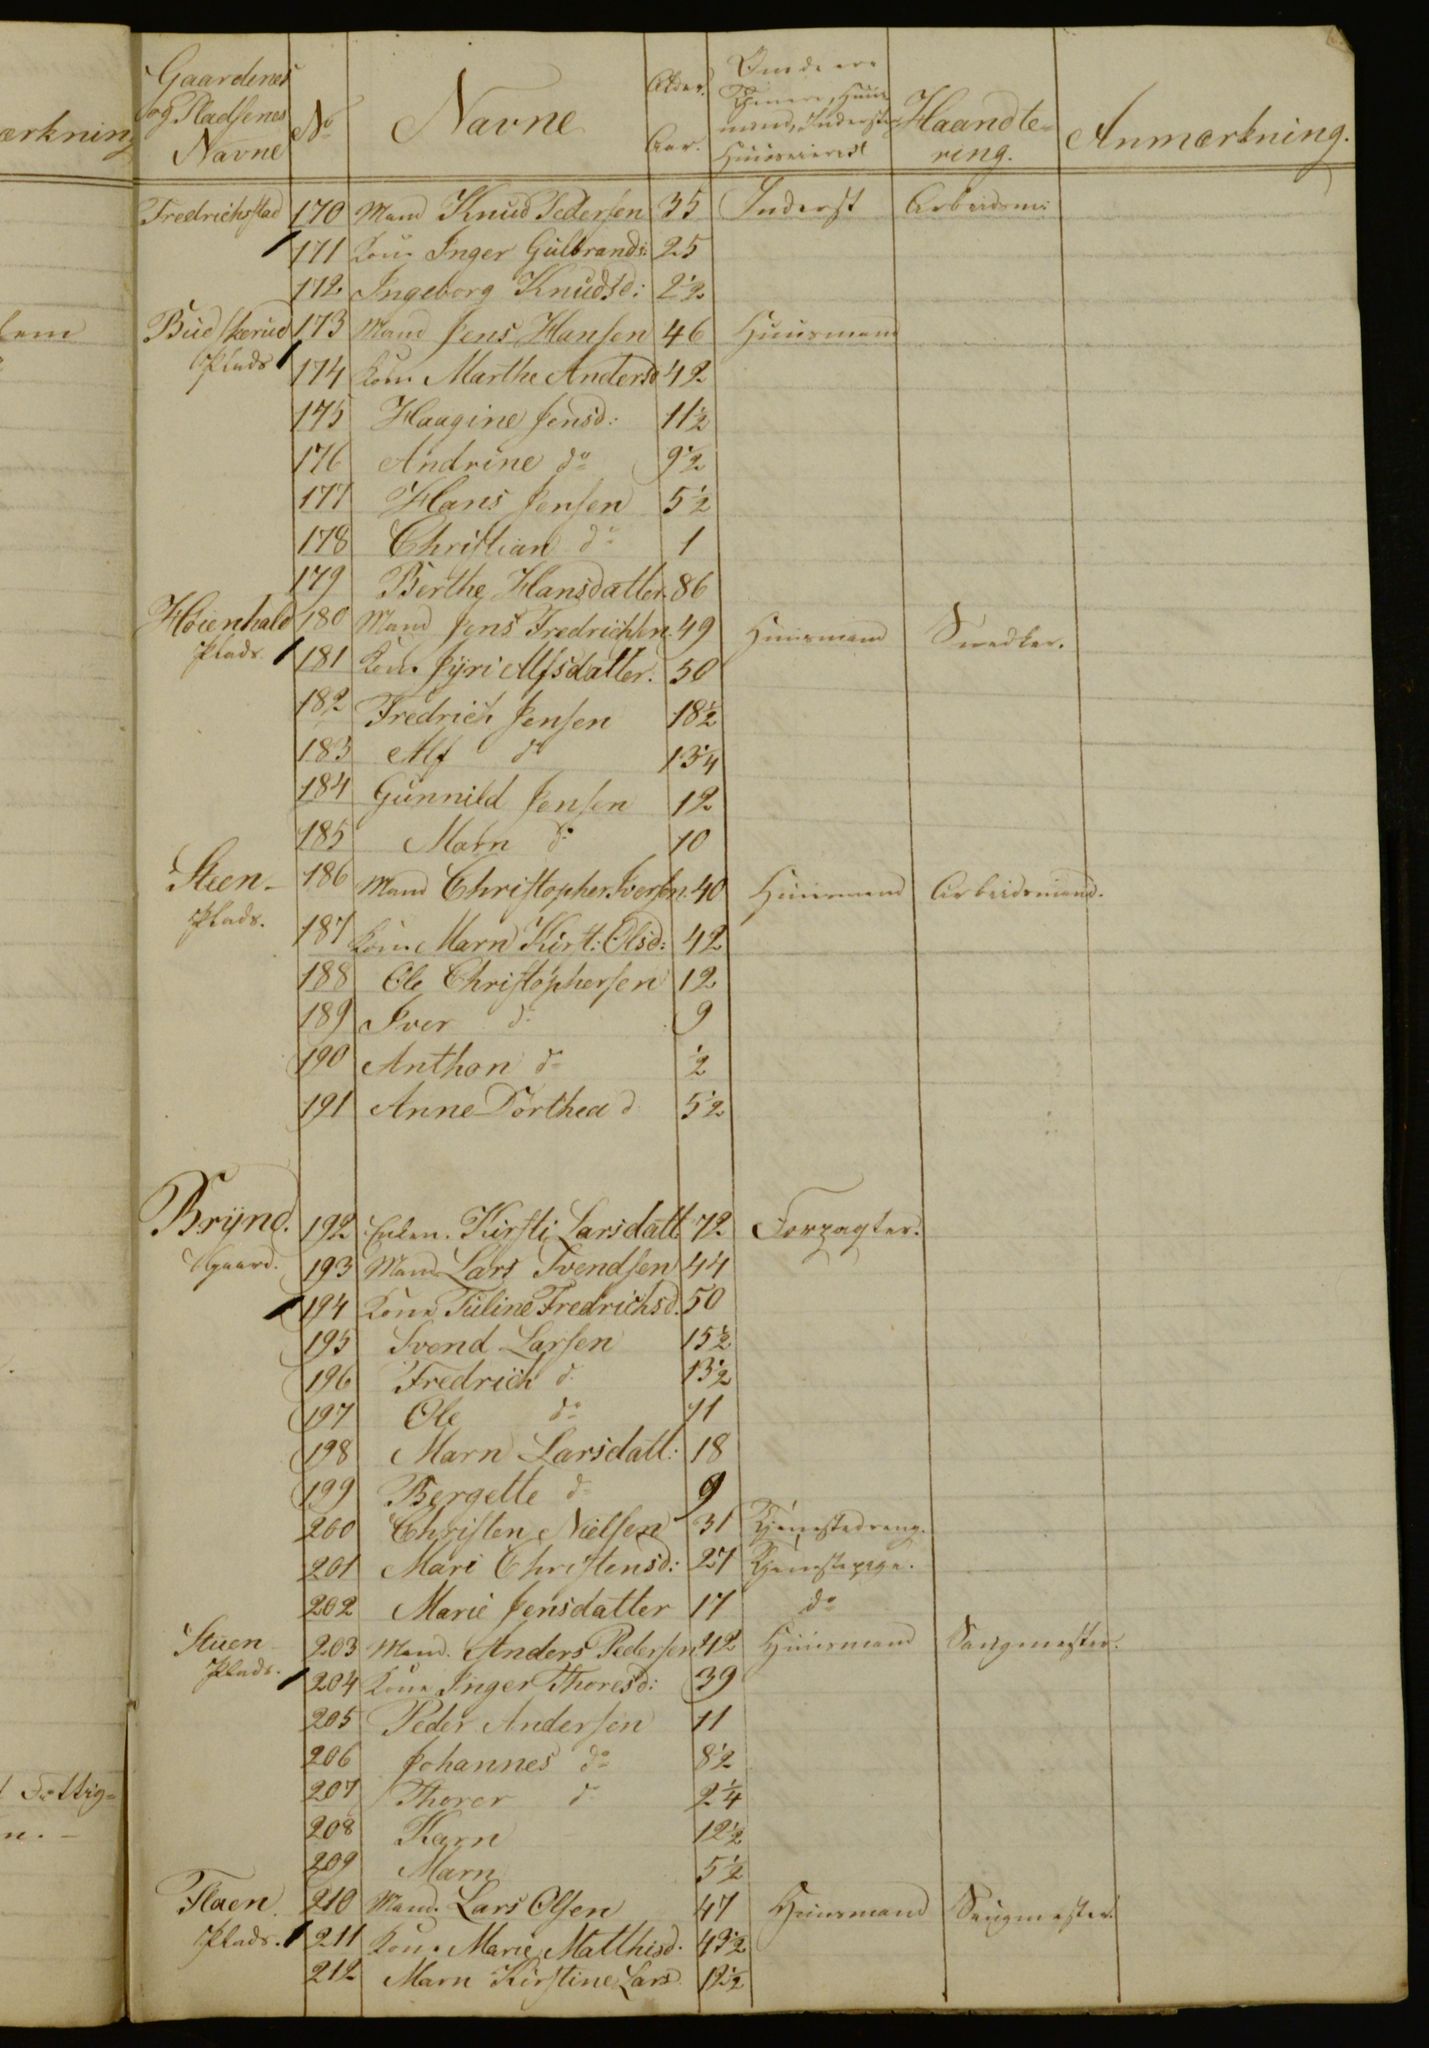 ærkning
Gaardenes og Pladsenes Navne | No | Navne | Alder. Aar. | Om de ere Tienere, Huusmænd, Inderster | Haandtering. | Anmærkning.
Fredrichstad 170 Mand Knud Pedersen 35 Inderst Arbeidsm:
171 Kone Inger Gulbrands: 25
172 Ingeborg Knudsd: 2½
Budskerud 173 Mand Jens Hansen 46 Huusmand
Plads 174 Kone Marthe Andersd 42
175 Haagine Jensd: 11½
176 Andrine do 9½
177 Hans Jensen 5½
178 Christian do 1
179 Berthe Hansdatter 86
Høienhald 180 Mand Jens Fredrichsen 49 Huusmand Snedker.
Plads. 181 Kone Jyri Alfsdatter. 50
182 Fredrich Jensen 18½
183 Alf do
184 Gunnild Jensen 12
185 Marn do 10
Steen- 186 Mand Christopher Iversen 40 Huusmand Arbeidsmand.
Plads. 187 Kone Marn Kirst: Olsd: 42
188 Ole Christophersen 12
189 Iver do 9
190 Anthon do ½
191 Anne Dorthea d 5½
Brynd. 192 Enken. Kirsti Larsdatt 72 Forpagter.
Gaard. 193 Mand Lars Svendsen 44
194 Kone Tuline Fredrichsd. 50
195 Svend Larsen 15½
196 Fredrich d: 13½
197 Ole do 11
198 Marn Larsdatt: 18
199 Bergette do 9
200 Christen Nielsen 31 Tjenestedreng.
201 Mari Christensd: 27 Tjenestepige.
202 Marie Jensdatter 17 do
Stuen- 203 Mand. Anders Pedersen 42 Huusmand Saugmester.
Plads. 204 Kone Inger Thoresd: 39
205 Peder Andersen 11
206 Johannes do 8½
207 Thorer do 2¼
208 Karn 12½
209 Marn 5½
Flaen 210 Mand. Lars Olsen 47 Huusmand Saugmester
Plads. 211 Kone Marie Matthisd. 43½
212 Marn Kirstine Lars 12½